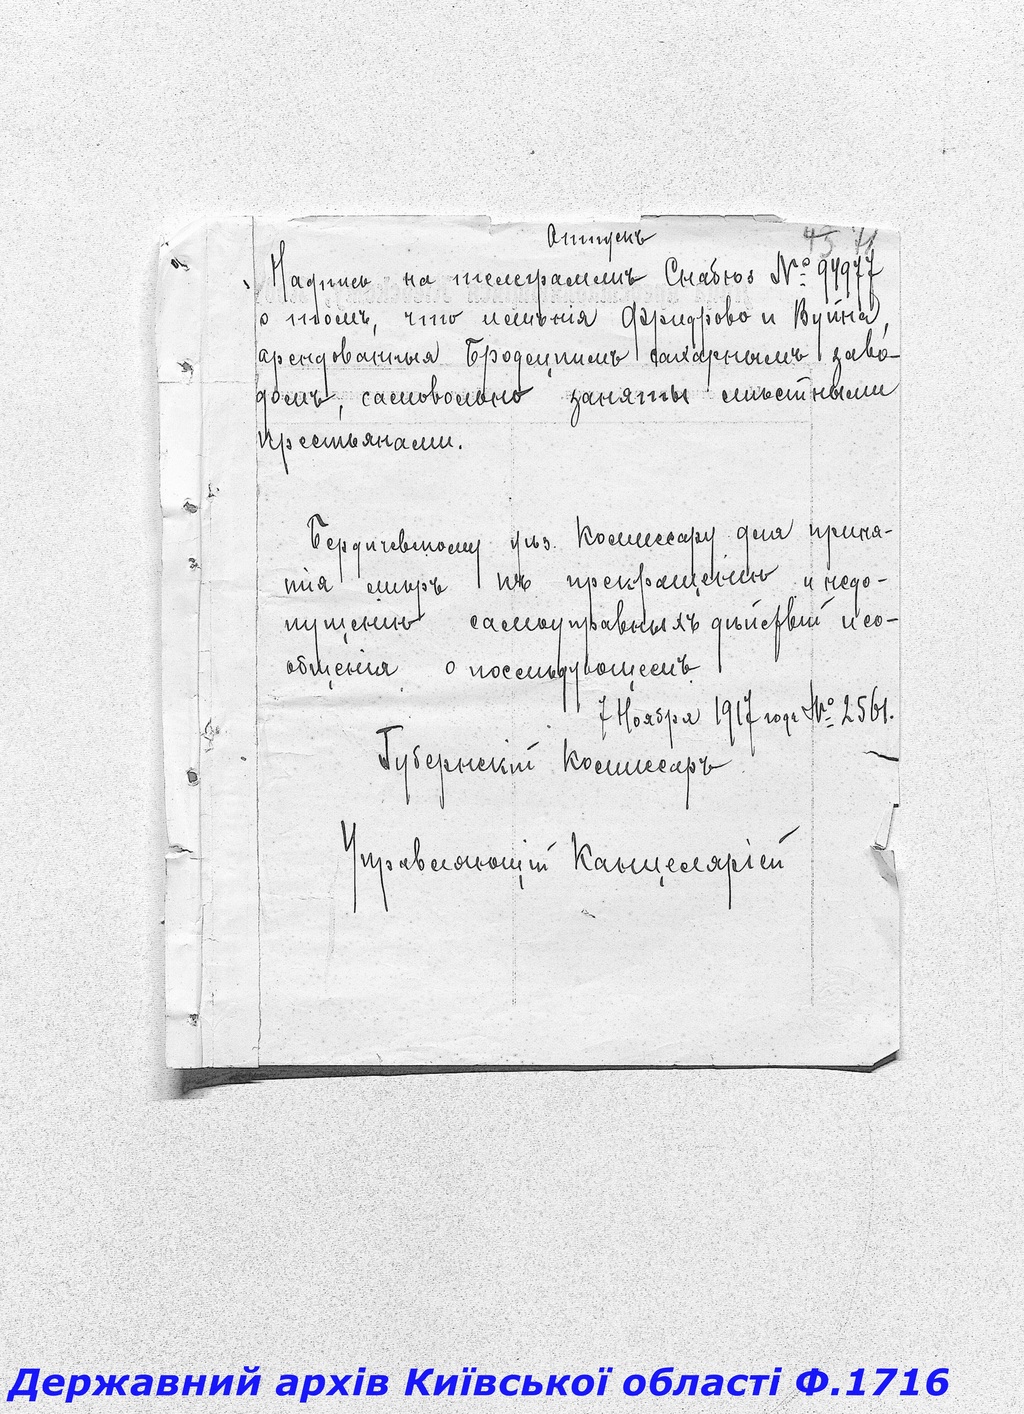 Отпускъ
45 71
Надпись на телеграммѣ Снабюз № 94977
о томъ, что имѣнія и Вуйна,
арендованныя Бродецкимъ сахарнымъ заво-
домъ, самовольно заняты мѣстными
крестьянами.
Бердичевскому уѣз. Комиссару для приня-
тія мѣръ къ прекращенію и недо-
пущенію самоуправныхъ дѣйствій и со-
общенія о послѣдующемъ.
7 Ноября 1917 года № 2561.
Губернскій Комиссаръ
Управляющій Канцеляріей
Державний архів Київської області Ф.1716